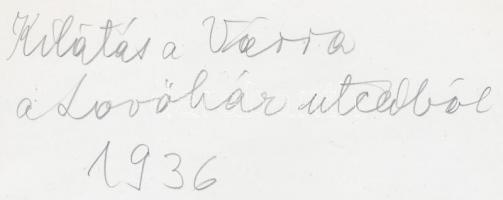 Kilátás a Várra
a Lovőház utcából
1936